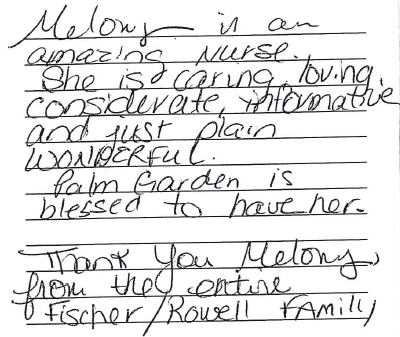 Melony is an
amazing Nurse.
She is caring, loving,
considerate, informative
and just plain
WONDERFUL.
Palm Garden is
blessed to have her.
Thank You Melony,
from the entire
Fischer/Rowell FAMILY